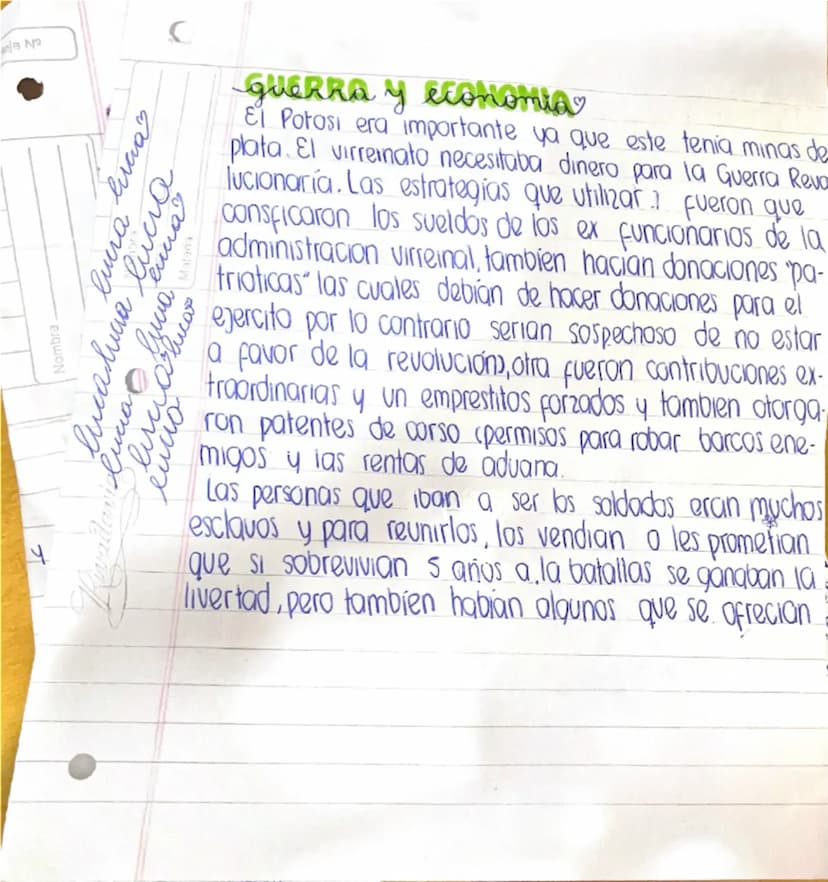 guerra y economia
El Potosi era importante ya que este tenia minas de
plata. El virreinato necesitaba dinero para la Guerra Revo
lucionaría. Las estrategias que utilizar fueron que
consficaron los sueldos de los ex funcionarios de la
administracion virreinal, tambien hacian donaciones "pa-
trioticas" las cuales debian de hacer donaciones para el
ejercito por lo contrario serian sospechoso de no estar
a favor de la revolución), otra fueron contribuciones ex-
traordinarias y un emprestitos forzados y tambien otorga-
ron patentes de corso (permisos para robar barcos ene-
migos y las rentas de aduana.
Las personas que iban a ser los soldados eran muchos
esclavos y para reunirlos, los vendian o les prometian
que si sobrevivian 5 años a la batallas se ganaban la
livertad, pero tambien habian algunos que se ofrecian
Nº
Nombre
Materia
lucia lucia lucia lucia
lucia lucia lucia
lucia lucia
lucia